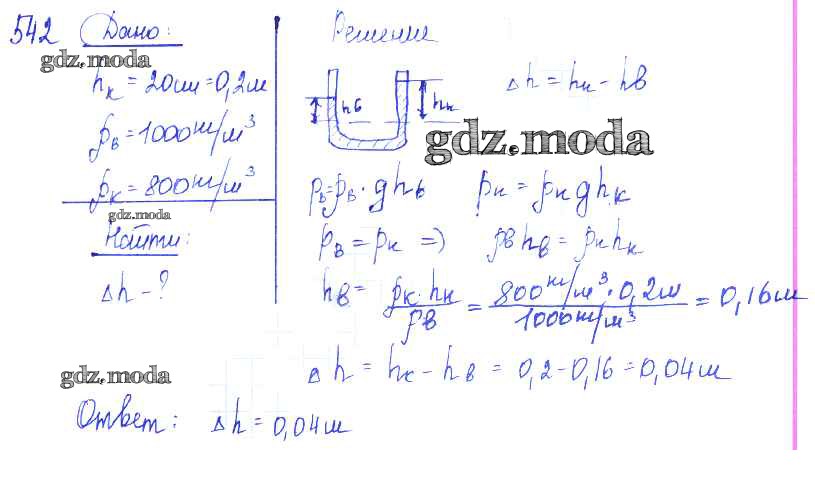 542 Дано:
gdz.moda
hк = 20см = 0,2м
ρв = 1000 кг/м³
ρк = 800 кг/м³
gdz.moda
Найти:
Δh - ?
Решение
hв hк
Δh = hк - hв
gdz.moda
pв = ρв · ghв pк = ρк ghк
pв = pк => ρв hв = ρк hк
hв = ρк · hк / ρв = 800 кг/м³ · 0,2м / 1000 кг/м³ = 0,16м
Δh = hк - hв = 0,2 - 0,16 = 0,04м
gdz.moda
Ответ: Δh = 0,04м